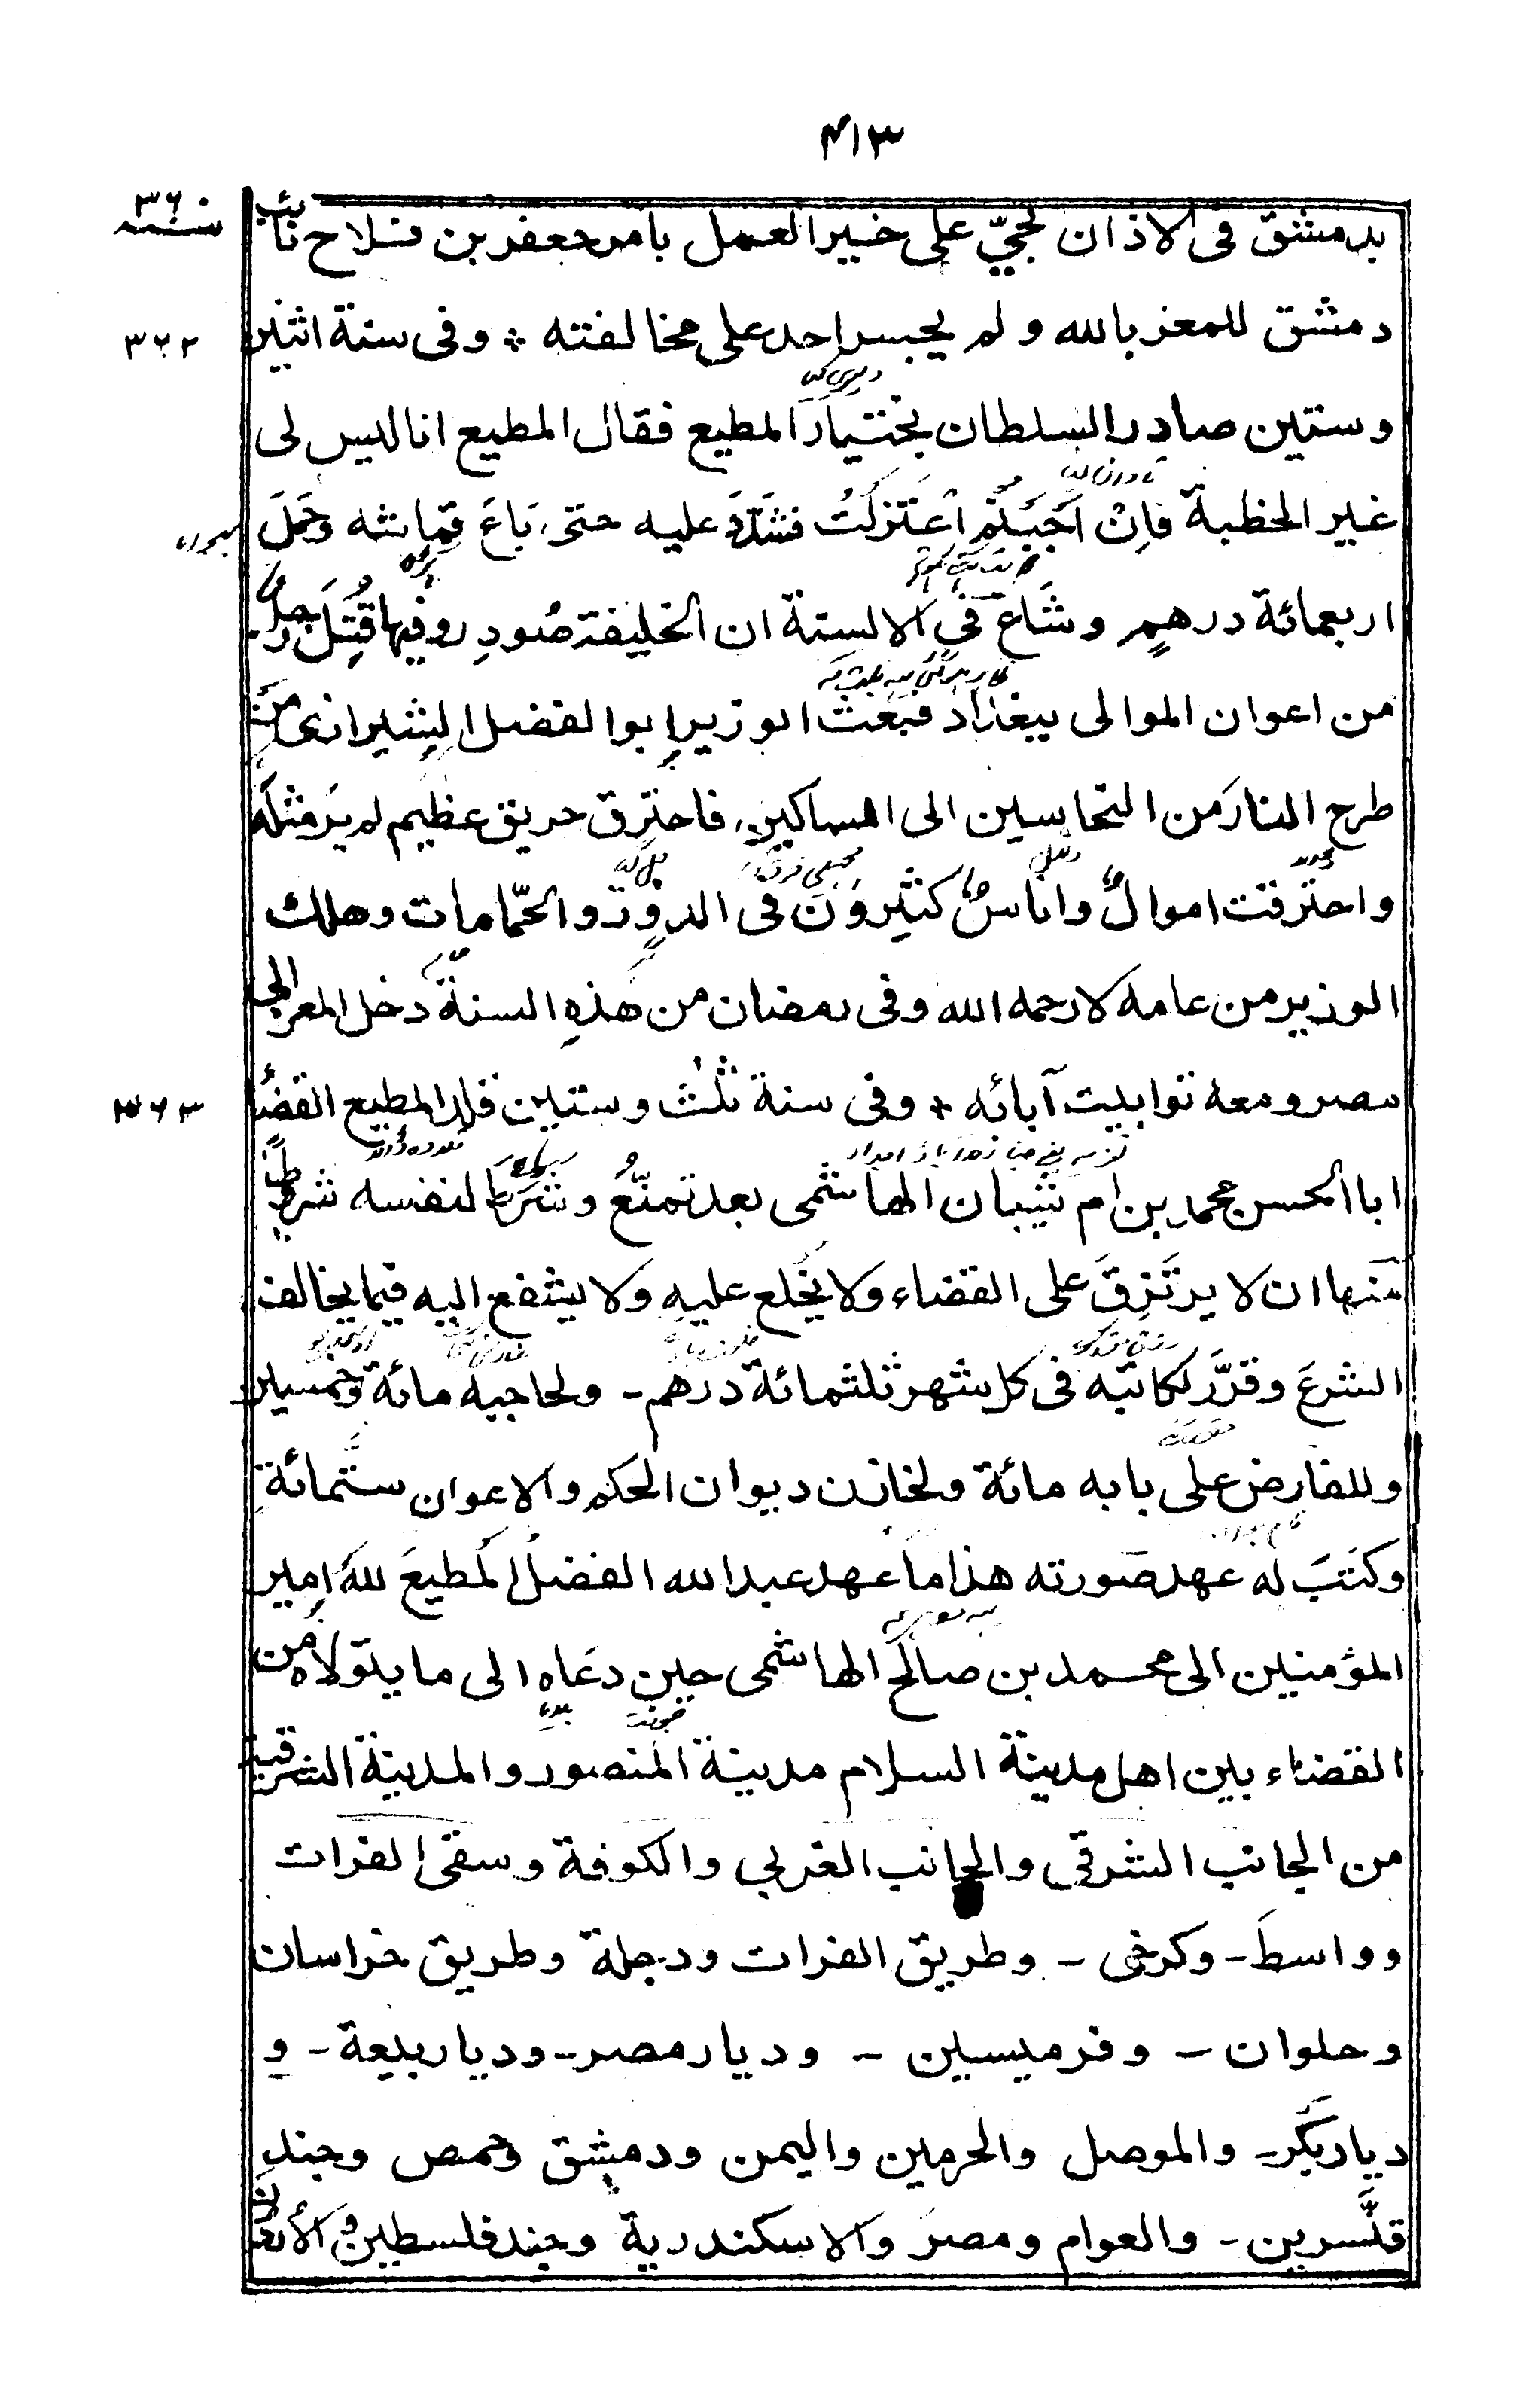 ۴۱۳
سنة ۳۶
بدمشق فی الاذان لحیّ علی خیر العمل بامر جعفر بن فلاح نائب
دمشق للمعز بالله و لم یجسر احد علی مخالفته ٭ و فی سنة اثنین
۳۶۲
و ستین صادر السلطان بختیار المطیع فقال المطیع انا لیس لی
غیر الخطبة فاِنْ اَحْبَبْتُم اعْتَزَلْتُ فشَدَّدَ علیه حتی بَاعَ قِمَاشه وحَمَلَ
اربعمائة درهمٍ و شَاعَ فی الالسنة ان الخلیفة صُودِر وفیها قُتِلَ رجلٌ
من اعوان الموالی ببغداد فبَعَثَ الوزیر ابو الفضل الشیرازی مَن
طرح النارَ من النحاسین الی السماکین فاحترق حریق عظیم لم یُرَ مثلُه
و احترقت اموالٌ و اناسٌ کثیرُونَ فی الدورِ و الحمّامات و هلك
الوزیر من عامه لا رحمه الله و فی رمضان من هٰذِهِ السنة دخل المعز الی
مصر و معه توابیت آبائه ٭ و فی سنة ثلٰث و ستین قلد المطیع القضاءَ
۳۶۳
ابا الحسن محمد بن ام شیبان الهاشمی بعد تمنّعٍ و شَرَطَ لنفسه شروطاً
منها ان لا یرتَزِقَ علی القضاء و لا یُخْلَع علیهِ و لا یشفع الیه فیما یخالف
الشرعَ و قرَّر لکاتبه فی کل شهر ثلثمائة درهم ۔ و لحاجبه مائة وخمسین
و للفارض علی بابه مائة و لخازن دیوان الحکم و الاعوان ستَّمائةٍ
و کتَبَ له عهد صورته هذا ما عهد عبد الله الفضلُ المُطیعَ للهِ امیر
المؤمنین الی محمد بن صالح الهاشمی حین دعَاه الی ما یتولاه من
القضاء بین اهل مدینة السلام مدینة المنصور و المدینة الشرقیة
من الجانب الشرقی و الجانب الغربی و الکوفة و سقی الفرات
و واسطَ ۔ و کرخی ۔ و طریق الفرات و دجلة و طریق خراسان
و حلوان ۔ و قرمیسین ۔ و دیار مصر ۔ و دیار بیعة ۔ و
دیار بَکر ۔ و الموصل و الحرمین و الیمن و دمشق وحمص و جندِ
قنَّسرین ۔ و العوام و مصرَ و الاسکندریة و جند فلسطین و الأردن